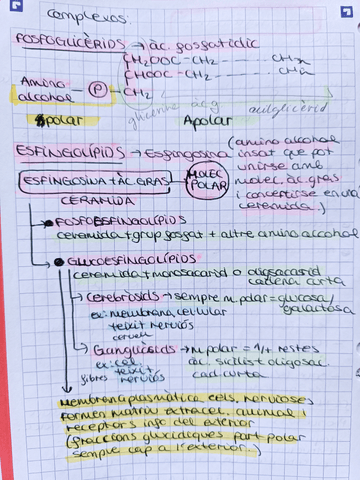 complexos.
FOSFOGLICÈRIDS → àc. fosfatídic
CH2OOC - CH2 ------ CH3
CHOOC - CH2 ------
Amino alcohol — P — CH2
glicerina àc. g
polar
Apolar
ESFINGOLÍPIDS → Esfingosina (amino alcohol
insat que pot
unirse amb
molec. àc. gras
i convertirse en una
ceramida.)
ESFINGOSINA + ÀC. GRAS
MOLEC POLAR
CERAMIDA
FOSFOESFINGOLÍPIDS
ceramida + grup fosfat + altre amino alcohol
GLUCOESFINGOLÍPIDS
ceramida + monosacàrid o oligosacàrid
cadena curta
Cerebròsids → sempre m. polar = glucosa/
galactosa
ex: membrana celular
teixit nerviós
cervell
Gangliòsids → m. polar = 1/+ restes
àc. siàlic + oligosac.
cad. curta
ex: cel.
teixit
fibres nerviós
Membrana plasmàtica cels. nervioses
formen matriu extracel. animal i
receptors info del exterior
(fraccions glucídiques part polar
sempre cap a l'exterior.)